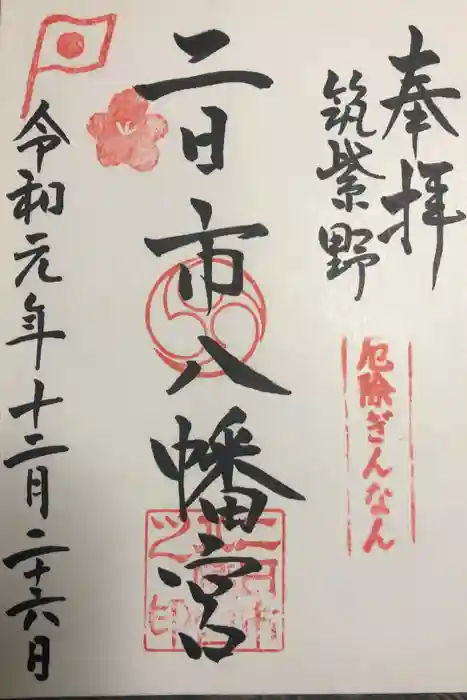 奉拝
筑紫野
厄除ぎんなん
二日市八幡宮
令和元年十二月二十六日